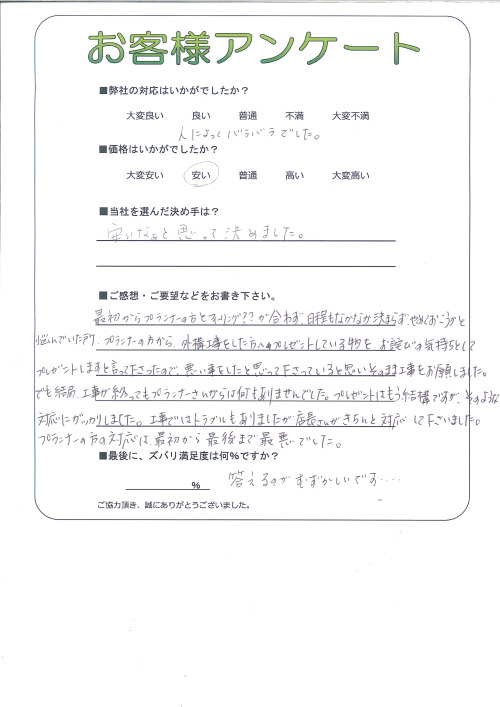 お客様アンケート
■弊社の対応はいかがでしたか？
大変良い 良い 普通 不満 大変不満
人によってバラバラでした。
■価格はいかがでしたか？
大変安い 安い 普通 高い 大変高い
■当社を選んだ決め手は？
安いなぁと思って決めました。
■ご感想・ご要望などをお書き下さい。
最初からプランナーの方とフィーリング??が合わず、日程もなかなか決まらず、やめておこうかと
悩んでいた所、プランナーの方から、外構工事をした方へプレゼントしている物を、お詫びの気持ちとして
プレゼントしますと言って下さったので、悪い事をしたと思って下さっていると思いそのまま工事をお願しました。
でも結局、工事が終ってもプランナーさんからは何もありませんでした。プレゼントはもう結構ですが、そのような
対応にガッカリしました。工事ではトラブルもありましたが店長さんがきちんと対応して下さいました。
プランナーの方の対応は、最初から最後まで最悪でした。
■最後に、ズバリ満足度は何%ですか？
% 答えるのがむずかしいです....
ご協力頂き、誠にありがとうございました。